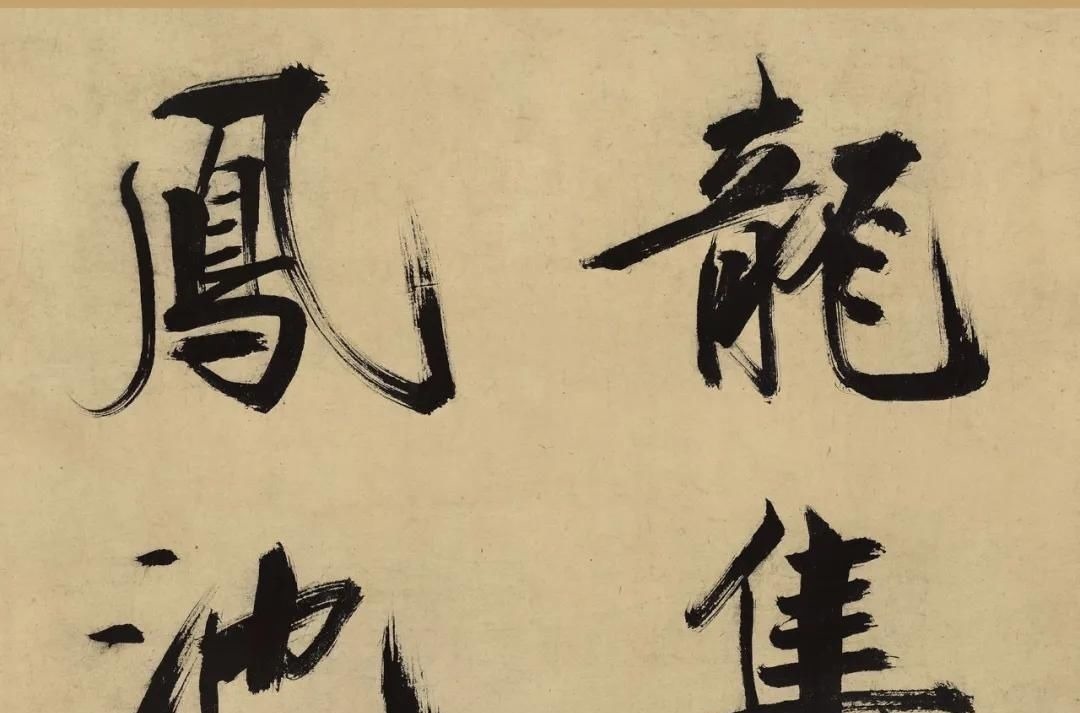 龍集
鳳池